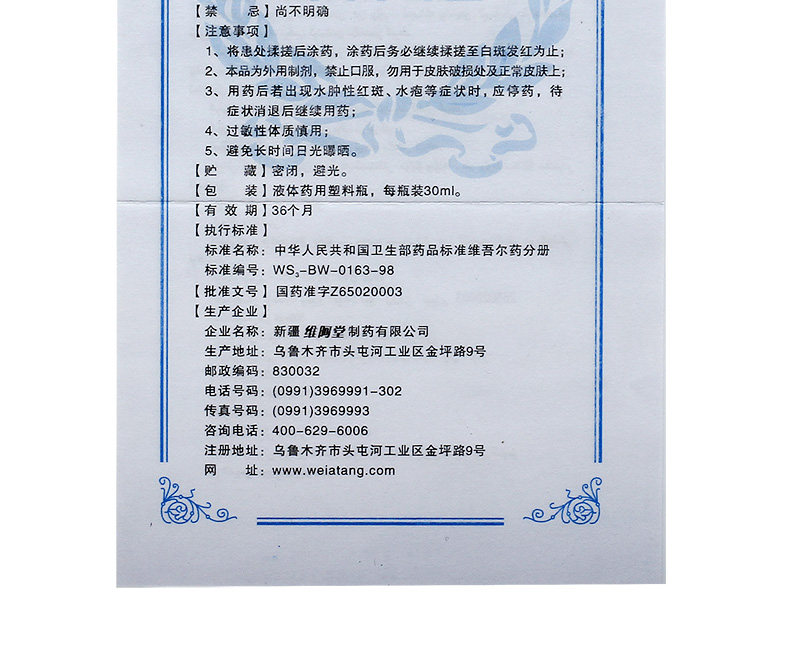 【禁　　忌】尚不明确
【注意事项】
1、将患处揉搓后涂药，涂药后务必继续揉搓至白斑发红为止；
2、本品为外用制剂，禁止口服，勿用于皮肤破损处及正常皮肤上；
3、用药后若出现水肿性红斑、水疱等症状时，应停药，待
症状消退后继续用药；
4、过敏性体质慎用；
5、避免长时间日光曝晒。
【贮　　藏】密闭，避光。
【包　　装】液体药用塑料瓶，每瓶装30ml。
【有 效 期】36个月
【执行标准】
标准名称：中华人民共和国卫生部药品标准维吾尔药分册
标准编号：WS₃-BW-0163-98
【批准文号】国药准字Z65020003
【生产企业】
企业名称：新疆维阿堂制药有限公司
生产地址：乌鲁木齐市头屯河工业区金坪路9号
邮政编码：830032
电话号码：(0991)3969991-302
传真号码：(0991)3969993
咨询电话：400-629-6006
注册地址：乌鲁木齐市头屯河工业区金坪路9号
网　　址：www.weiatang.com